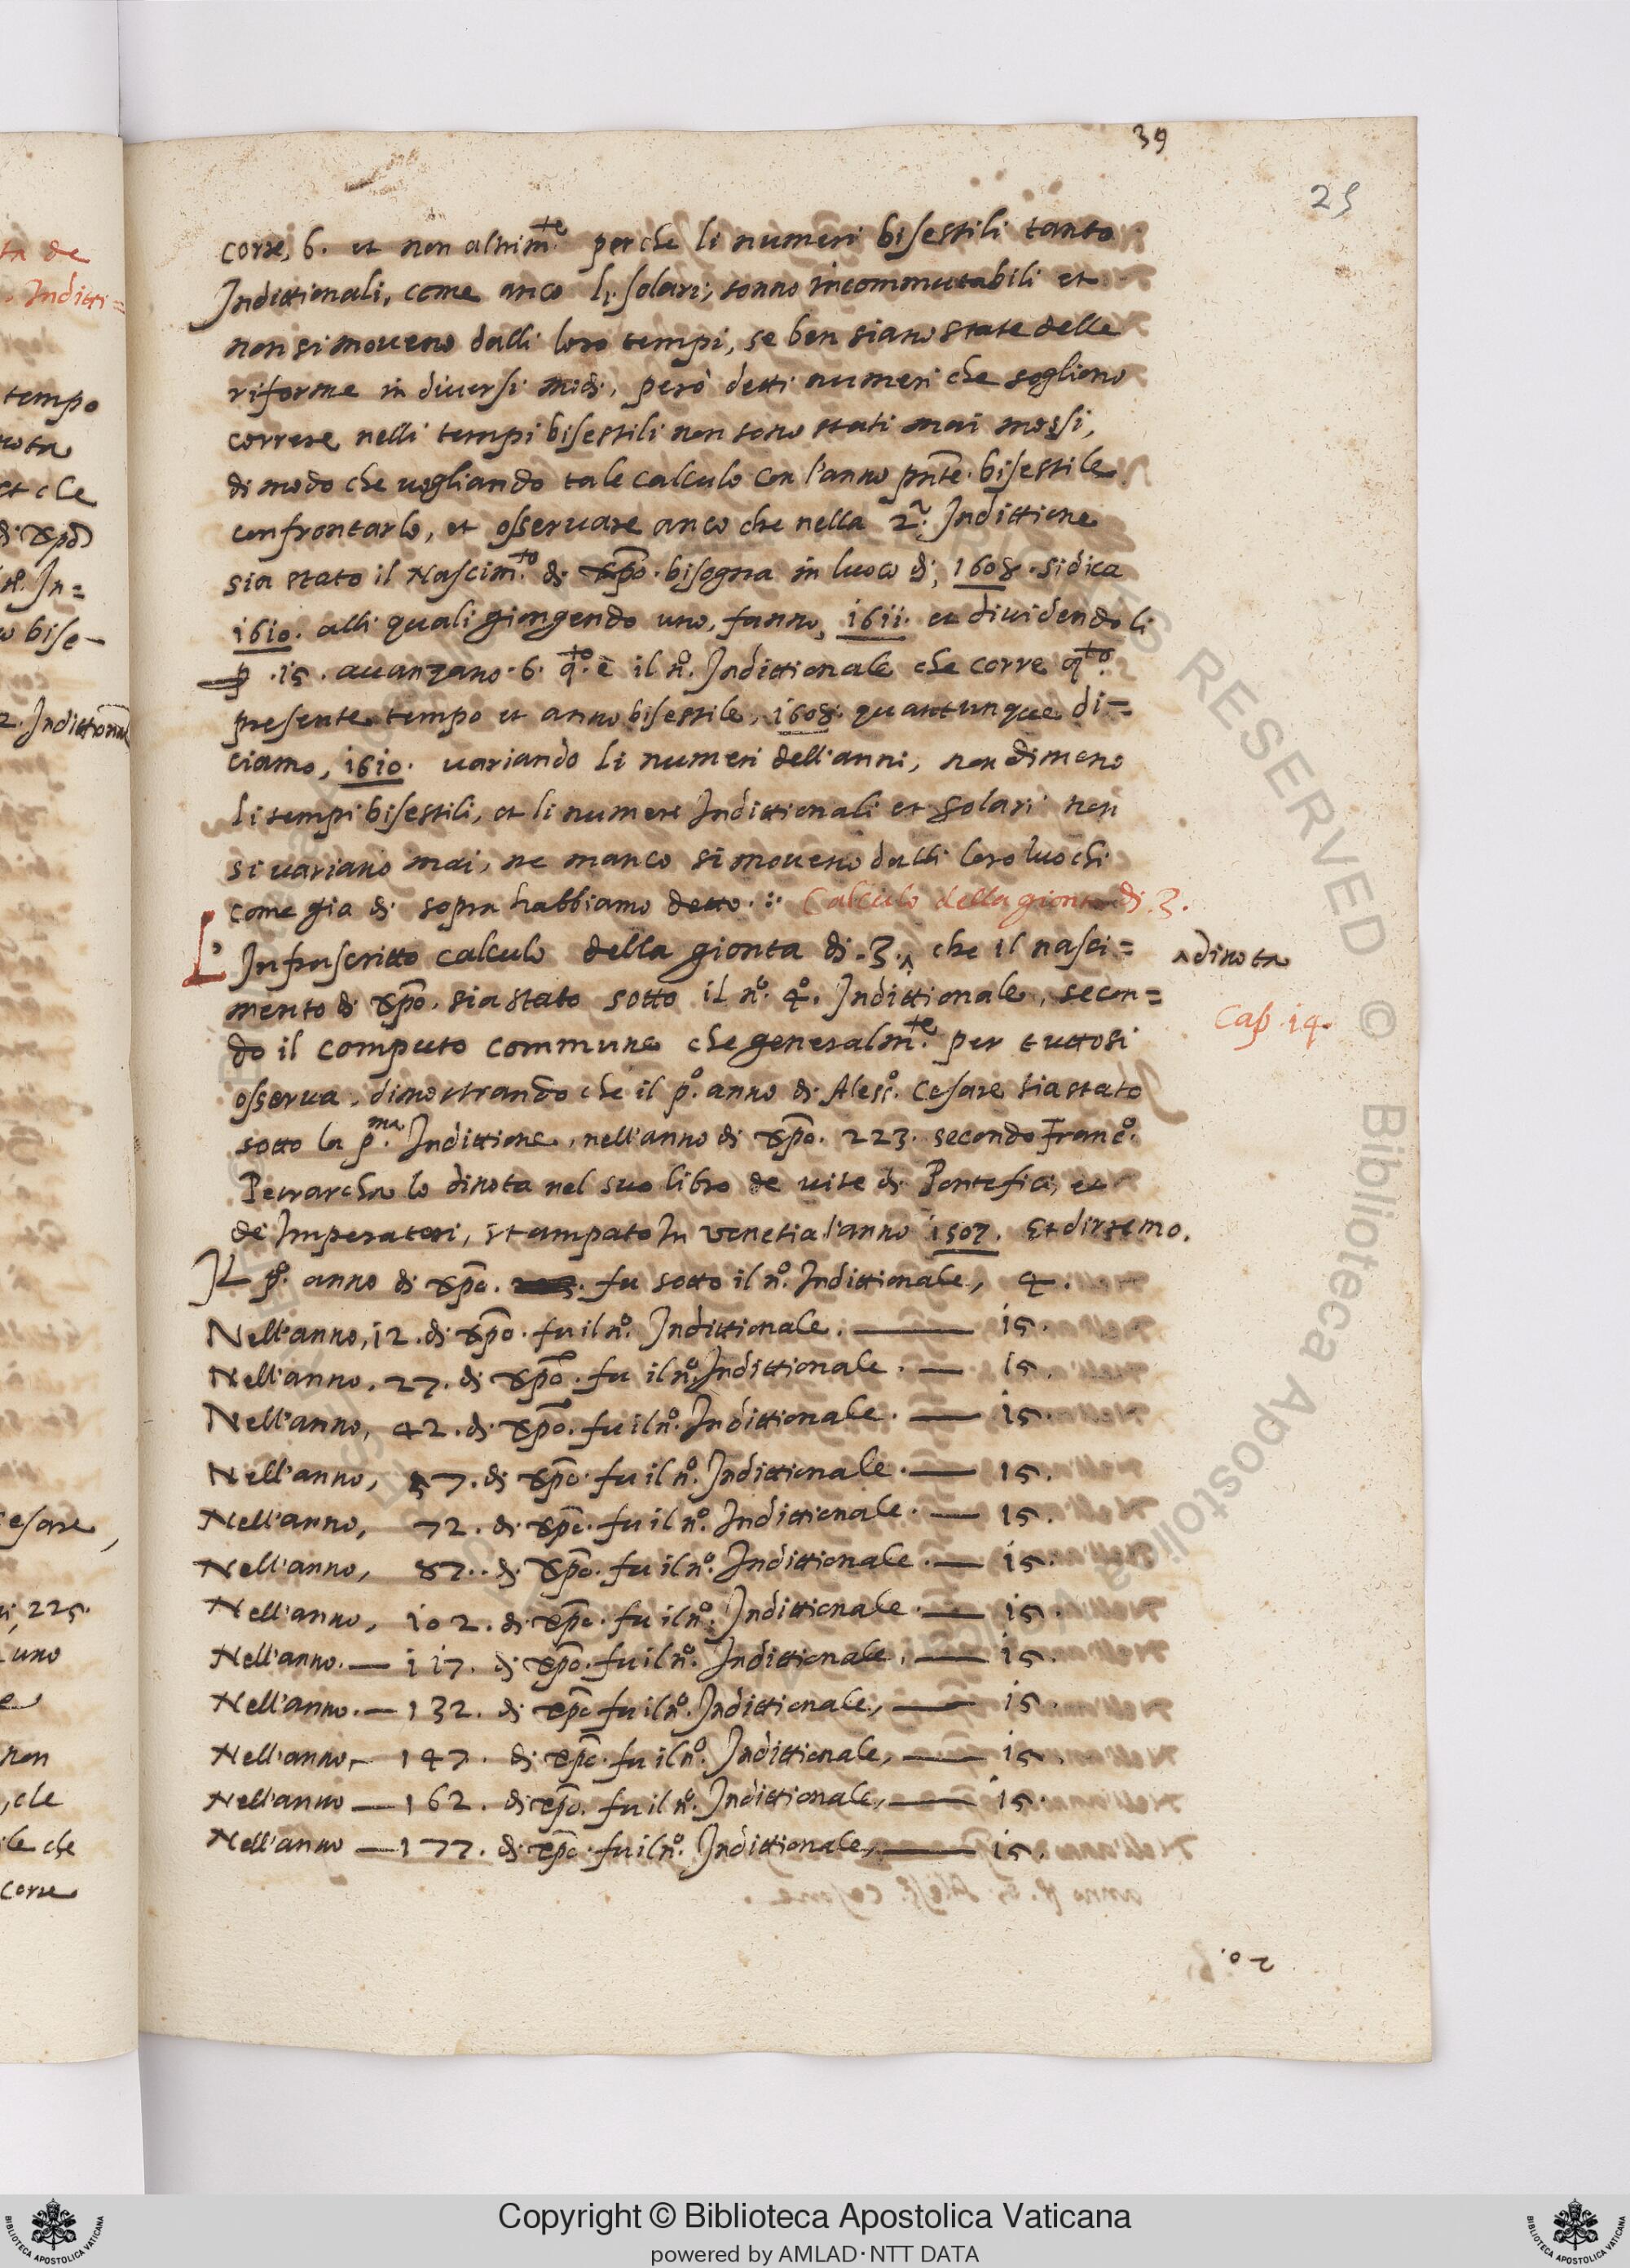 39
25
corre, 6. et non altrim.te perche li numeri bisestili tanto
Indittionali, come anco li solari, sonno incommutabili et
non si moveno dalli loro tempi, se ben siano state delle
riforme in diversi modi, però detti numeri che sogliono
correre nelli tempi bisestili non sono stati mai mossi,
di modo che vogliando tale calculo con l'anno pnte. bisestile
confrontarlo, et osservare anco che nella 2.a Indittione
sia stato il Nascim.to di xpo. bisogna in luoco di, 1608. si dica
1610. alli quali giongendo uno, fanno, 1611. et dividendoli
p .15. avanzano .6. q.to è il n.o Indittionale che corre q.to
presente tempo et anno bisestile, 1608. quantunque di=
ciamo, 1610. variando li numeri dell'anni, non dimeno
li tempi bisestili, et li numeri Indittionali et solari non
si variano mai, ne manco si moveno dalli loro luochi
come gia di sopra habbiamo detto. : Calculo della gionta di .3.
L' Infrascritto calculo della gionta di .3. ^ che il nasci=
^ dinota
mento di xpo. sia stato sotto il n.o 4.o Indittionale, secon=
Cap. 14.
do il computo commune che generalm.te per tutto si
osserva, dimostrando che il p.o anno di Aless.o Cesare sia stato
sotto la p.ma Indittione, nell'anno di xpo. 223. secondo Franc.o
Petrarcha lo dinota nel suo libro de vite di Pontefici, et
de Imperatori, stampato In Venetia l'anno 1507. Et dirsemo.
Il p.o anno di xpo. fu sotto il n.o Indittionale, 4.
Nell'anno, 12. di xpo. fu il n.o Indittionale. — 15.
Nell'anno. 27. di xpo. fu il n.o Indittionale. — 15.
Nell'anno, 42. di xpo. fu il n.o Indittionale. — 15.
Nell'anno, 57. di xpo. fu il n.o Indittionale. — 15.
Nell'anno, 72. di xpo. fu il n.o Indittionale. — 15.
Nell'anno, 87. di xpo. fu il n.o Indittionale. — 15.
Nell'anno, 102. di xpo. fu il n.o Indittionale. — 15.
Nell'anno. — 117. di xpo. fu il n.o Indittionale. — 15.
Nell'anno. — 132. di xpo fu il n.o Indittionale, — 15.
Nell'anno — 147. di xpo. fu il n.o Indittionale, — 15.
Nell'anno — 162. di xpo. fu il n.o Indittionale, — 15.
Nell'anno — 177. di xpo. fu il n.o Indittionale, — 15.
Copyright © Biblioteca Apostolica Vaticana
powered by AMLAD·NTT DATA